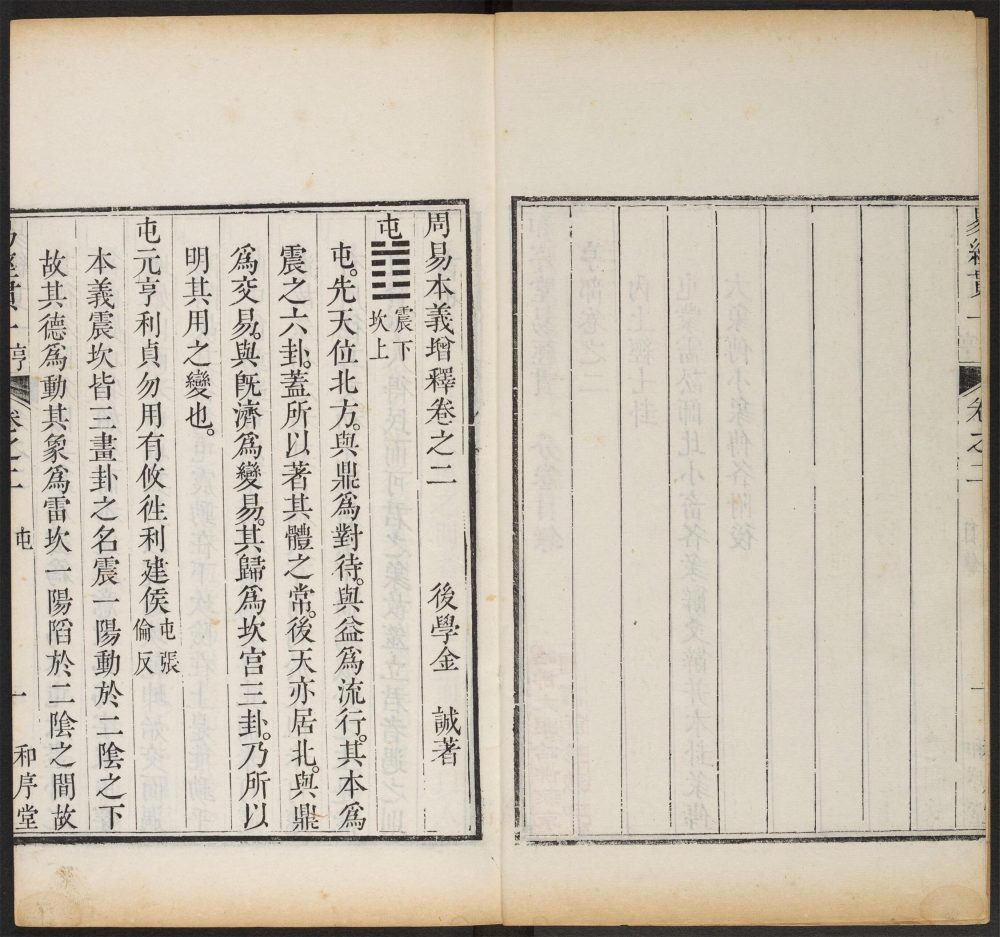 易經貫一
卷之二
一
周易本義增釋卷之二 後學金 誠著
屯䷂ 震下坎上
屯。先天位北方。與鼎爲對待。與益爲流行。其本爲
震之六卦。蓋所以著其體之常。後天亦居北。與鼎
爲交易。與旣濟爲變易。其歸爲坎宫三卦。乃所以
明其用之變也。
屯元亨利貞勿用有攸徃利建侯 屯張倫反
本義震坎皆三畫卦之名震一陽動於二陰之下
故其德爲動其象爲雷坎一陽䧟於二陰之間故
易經貫一 亨 卷之二 屯 一 和序堂